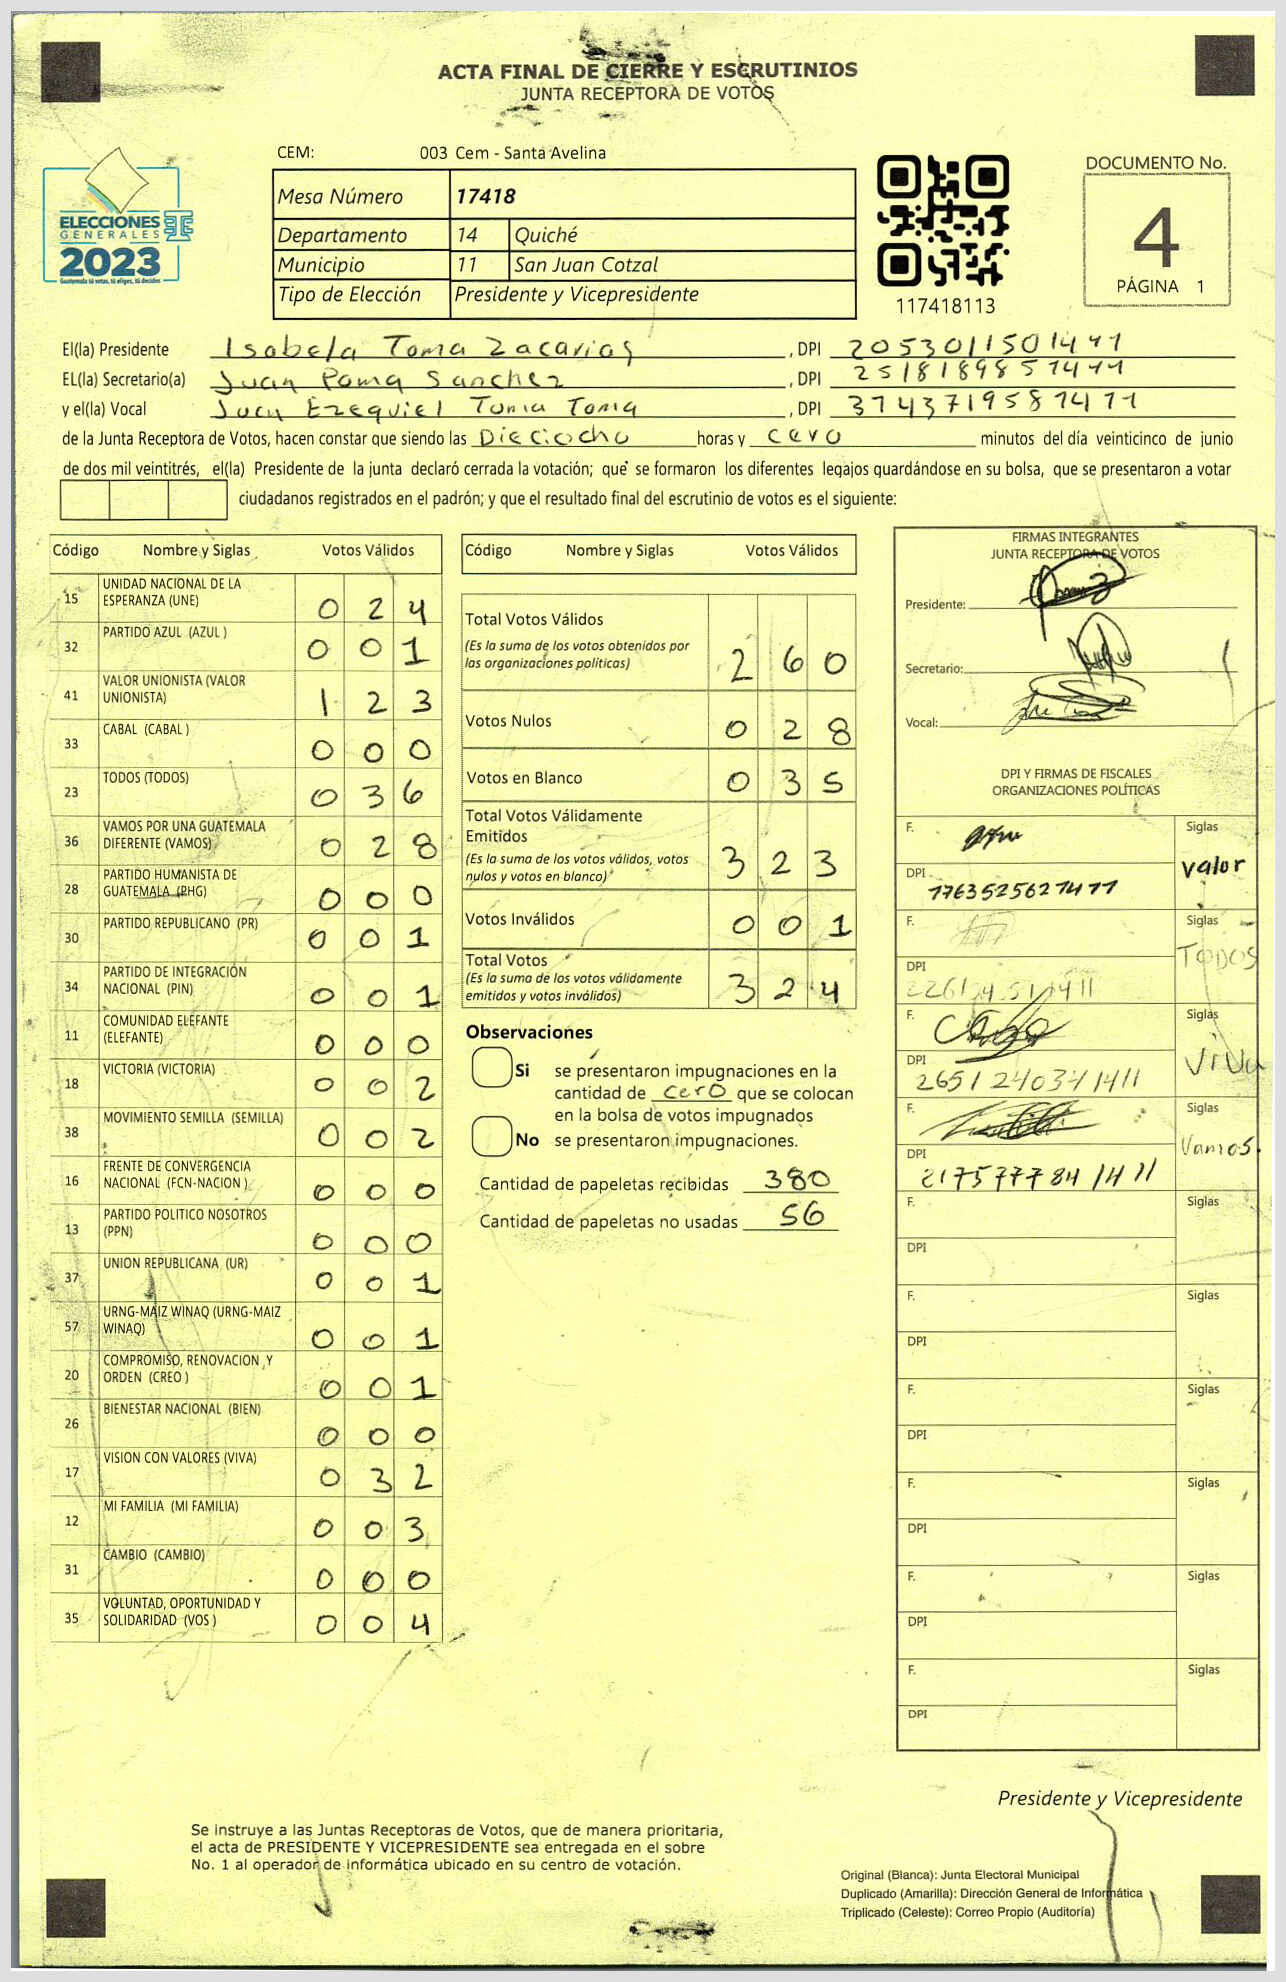 ACTA FINAL DE CIERRE Y ESCRUTINIOS
JUNTA RECEPTORA DE VOTOS
CEM: 003 Cem - Santa Avelina
ELECCIONES
GENERALES
2023
Guatemala tú votas, tú eliges, tú decides
Mesa Número 17418
Departamento 14 Quiché
Municipio 11 San Juan Cotzal
Tipo de Elección Presidente y Vicepresidente
117418113
DOCUMENTO No.
4
PÁGINA 1
El(la) Presidente Isabela Toma Zacarias, DPI 2053011501411
EL(la) Secretario(a) Juan Poma Sanchez, DPI 2518189851411
y el(la) Vocal Juan Ezequiel Toma Toma, DPI 3743719581411
de la Junta Receptora de Votos, hacen constar que siendo las Dieciocho horas y cero minutos del día veinticinco de junio
de dos mil veintitrés, el(la) Presidente de la junta declaró cerrada la votación; que se formaron los diferentes legajos guardándose en su bolsa, que se presentaron a votar
ciudadanos registrados en el padrón; y que el resultado final del escrutinio de votos es el siguiente:
Código Nombre y Siglas Votos Válidos
15 UNIDAD NACIONAL DE LA ESPERANZA (UNE) 0 2 4
32 PARTIDO AZUL (AZUL ) 0 0 1
41 VALOR UNIONISTA (VALOR UNIONISTA) 1 2 3
33 CABAL (CABAL ) 0 0 0
23 TODOS (TODOS) 0 3 6
36 VAMOS POR UNA GUATEMALA DIFERENTE (VAMOS) 0 2 8
28 PARTIDO HUMANISTA DE GUATEMALA (PHG) 0 0 0
30 PARTIDO REPUBLICANO (PR) 0 0 1
34 PARTIDO DE INTEGRACIÓN NACIONAL (PIN) 0 0 1
11 COMUNIDAD ELEFANTE (ELEFANTE) 0 0 0
18 VICTORIA (VICTORIA) 0 0 2
38 MOVIMIENTO SEMILLA (SEMILLA) 0 0 2
16 FRENTE DE CONVERGENCIA NACIONAL (FCN-NACION ) 0 0 0
13 PARTIDO POLITICO NOSOTROS (PPN) 0 0 0
37 UNION REPUBLICANA (UR) 0 0 1
57 URNG-MAIZ WINAQ (URNG-MAIZ WINAQ) 0 0 1
20 COMPROMISO, RENOVACION Y ORDEN (CREO ) 0 0 1
26 BIENESTAR NACIONAL (BIEN) 0 0 0
17 VISION CON VALORES (VIVA) 0 3 2
12 MI FAMILIA (MI FAMILIA) 0 0 3
31 CAMBIO (CAMBIO) 0 0 0
35 VOLUNTAD, OPORTUNIDAD Y SOLIDARIDAD (VOS ) 0 0 4
Código Nombre y Siglas Votos Válidos
Total Votos Válidos
(Es la suma de los votos obtenidos por
las organizaciones políticas) 2 6 0
Votos Nulos 0 2 8
Votos en Blanco 0 3 5
Total Votos Válidamente
Emitidos
(Es la suma de los votos válidos, votos
nulos y votos en blanco) 3 2 3
Votos Inválidos 0 0 1
Total Votos
(Es la suma de los votos válidamente
emitidos y votos inválidos) 3 2 4
Observaciones
Si se presentaron impugnaciones en la
cantidad de cero que se colocan
en la bolsa de votos impugnados
No se presentaron impugnaciones.
Cantidad de papeletas recibidas 380
Cantidad de papeletas no usadas 56
FIRMAS INTEGRANTES
JUNTA RECEPTORA DE VOTOS
Presidente:
Secretario:
Vocal:
DPI Y FIRMAS DE FISCALES
ORGANIZACIONES POLÍTICAS
F. Siglas
DPI 1763525621411 Valor
F. Siglas
DPI TODOS
F. Siglas
DPI 2651240341411 VIVA
F. Siglas
DPI 2175777841411 Vamos
F. Siglas
DPI
F. Siglas
DPI
F. Siglas
DPI
F. Siglas
DPI
F. Siglas
DPI
F. Siglas
DPI
Presidente y Vicepresidente
Se instruye a las Juntas Receptoras de Votos, que de manera prioritaria,
el acta de PRESIDENTE Y VICEPRESIDENTE sea entregada en el sobre
No. 1 al operador de informática ubicado en su centro de votación.
Original (Blanca): Junta Electoral Municipal
Duplicado (Amarilla): Dirección General de Informática
Triplicado (Celeste): Correo Propio (Auditoría)